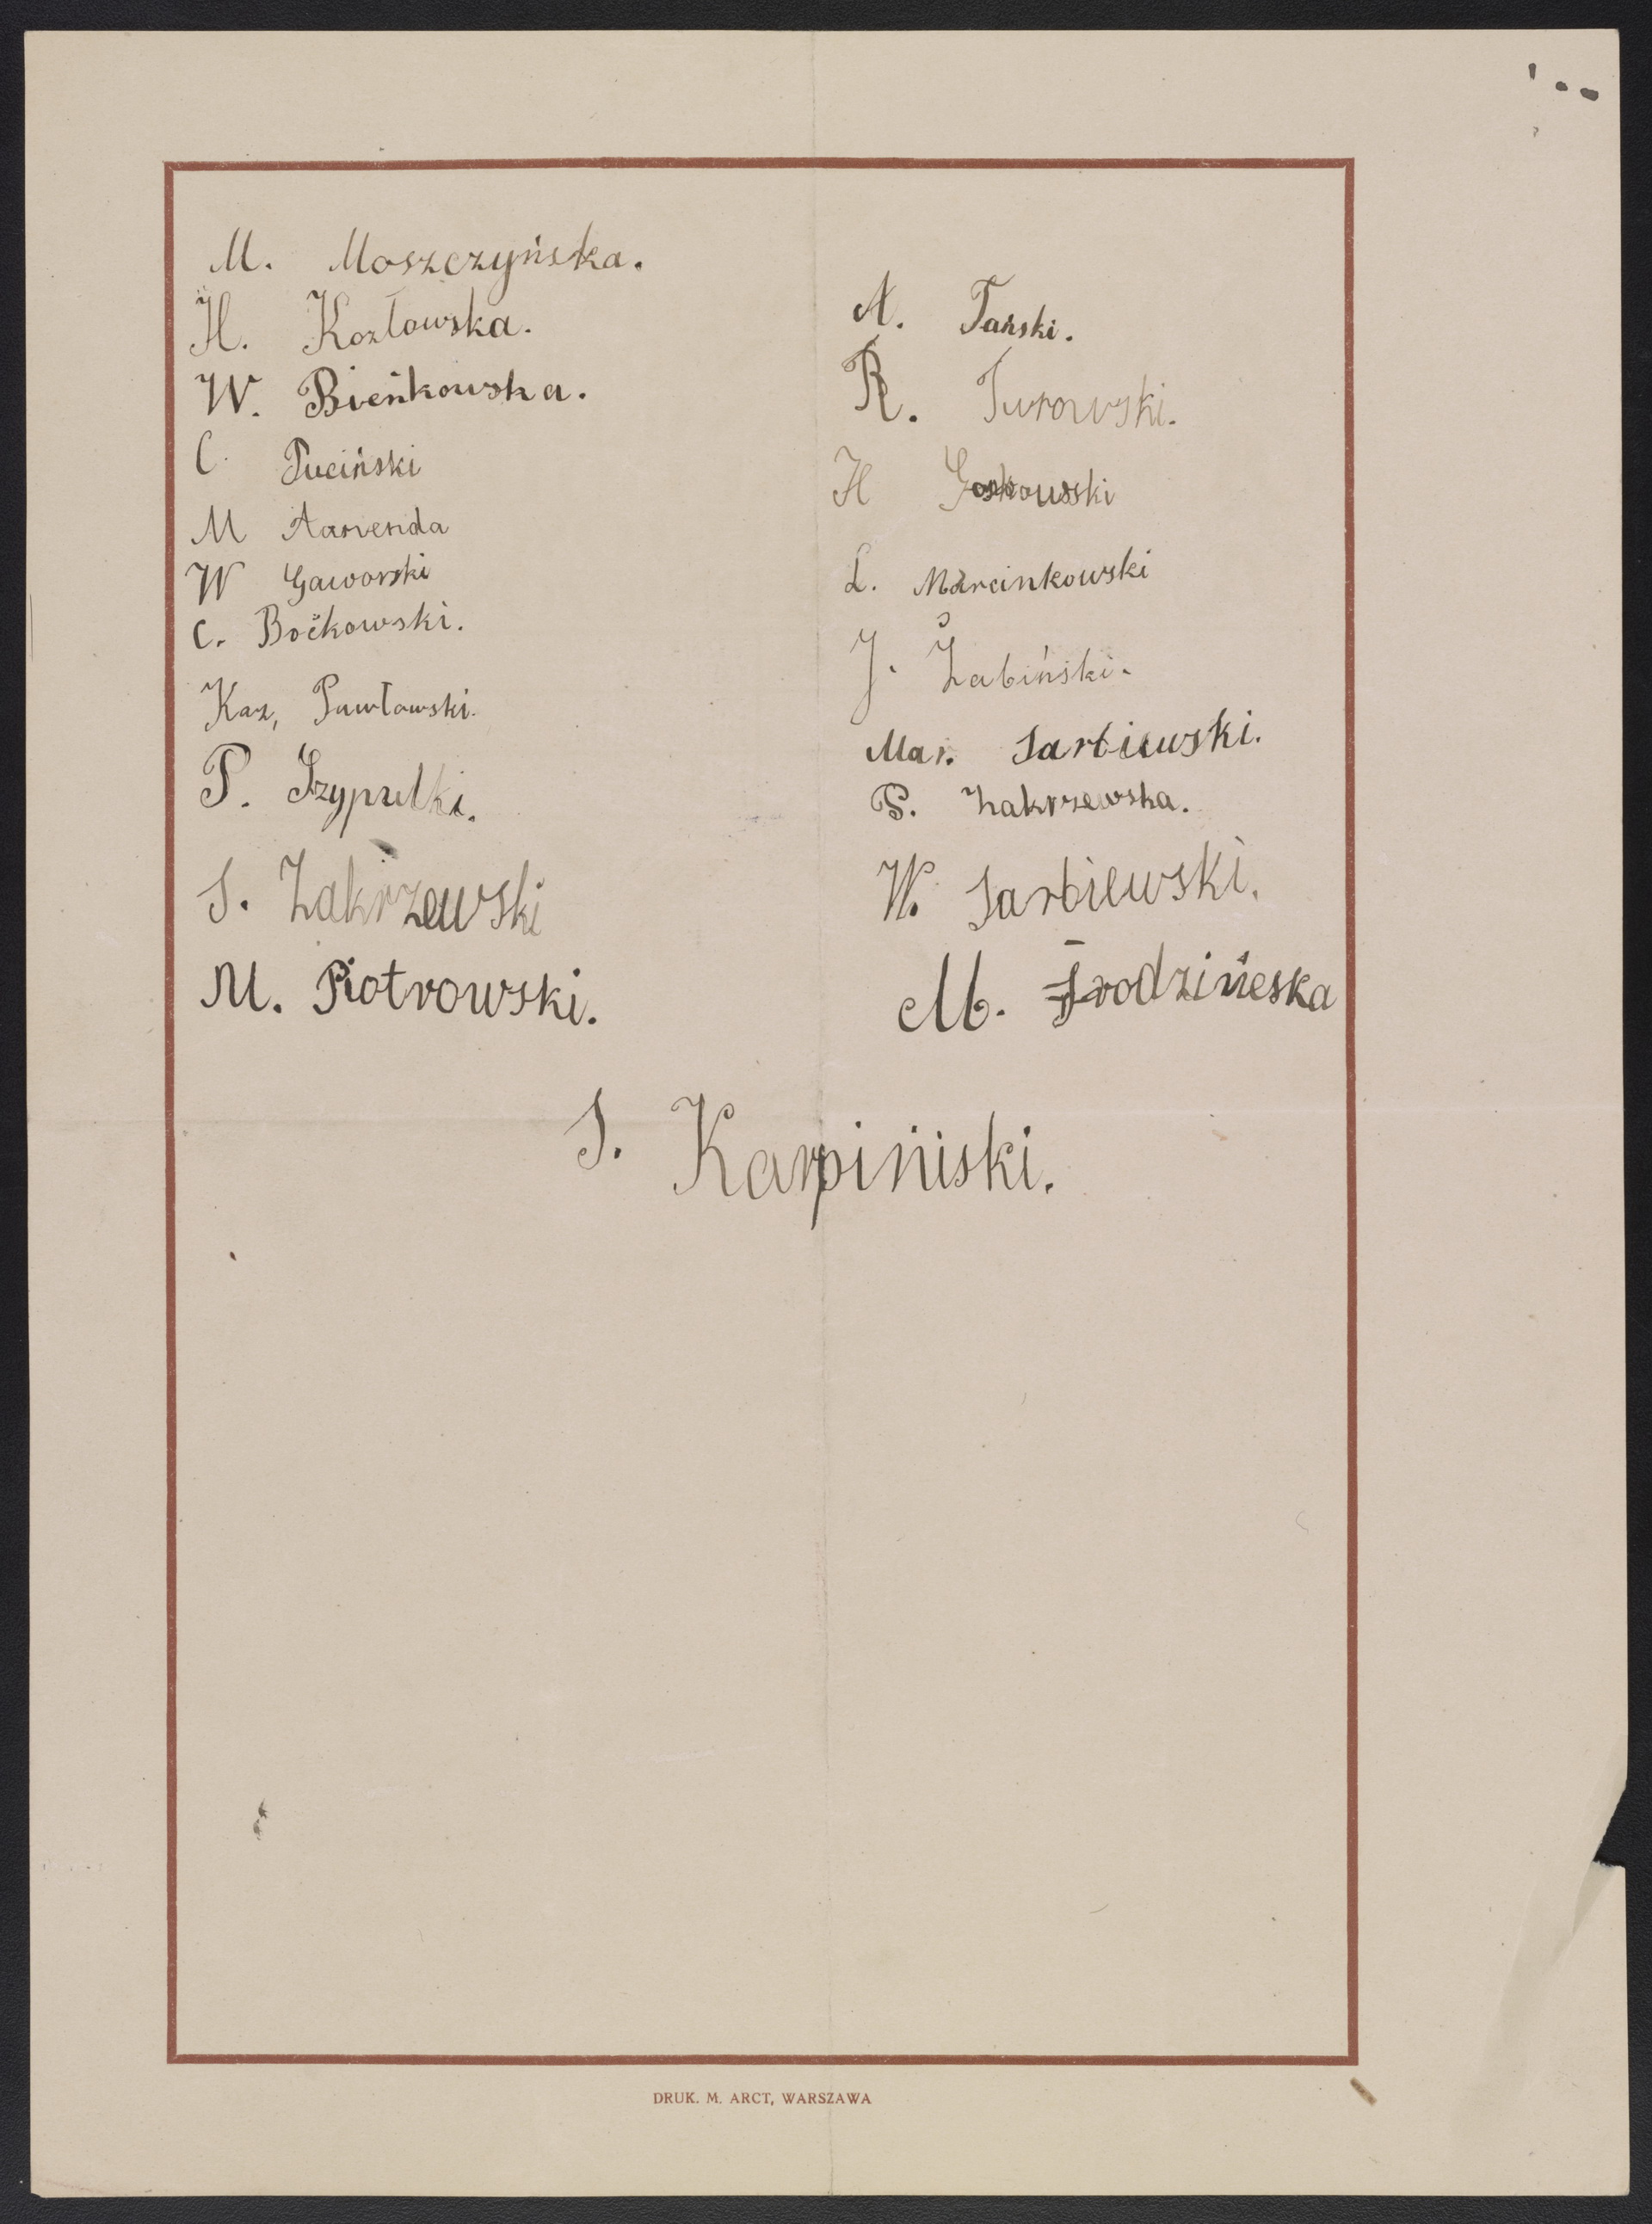 M. Moszczyńska.
H. Kozłowska.
W. Bieńkowska.
C. Puciński
M
W Gaworski
C. Boćkowski.
Kaz, Pawłowski.
P. Szypulki.
S. Zakrzewski
M. Piotrowski.
A. Tański.
R. Turowski.
H
L. Marcinkowski
J. Żabiński.
Mar. Sarbiewski.
B. Zakrzewska.
W. Sarbiewski.
M. Środzińeska
S. Karpiński.
DRUK. M. ARCT, WARSZAWA